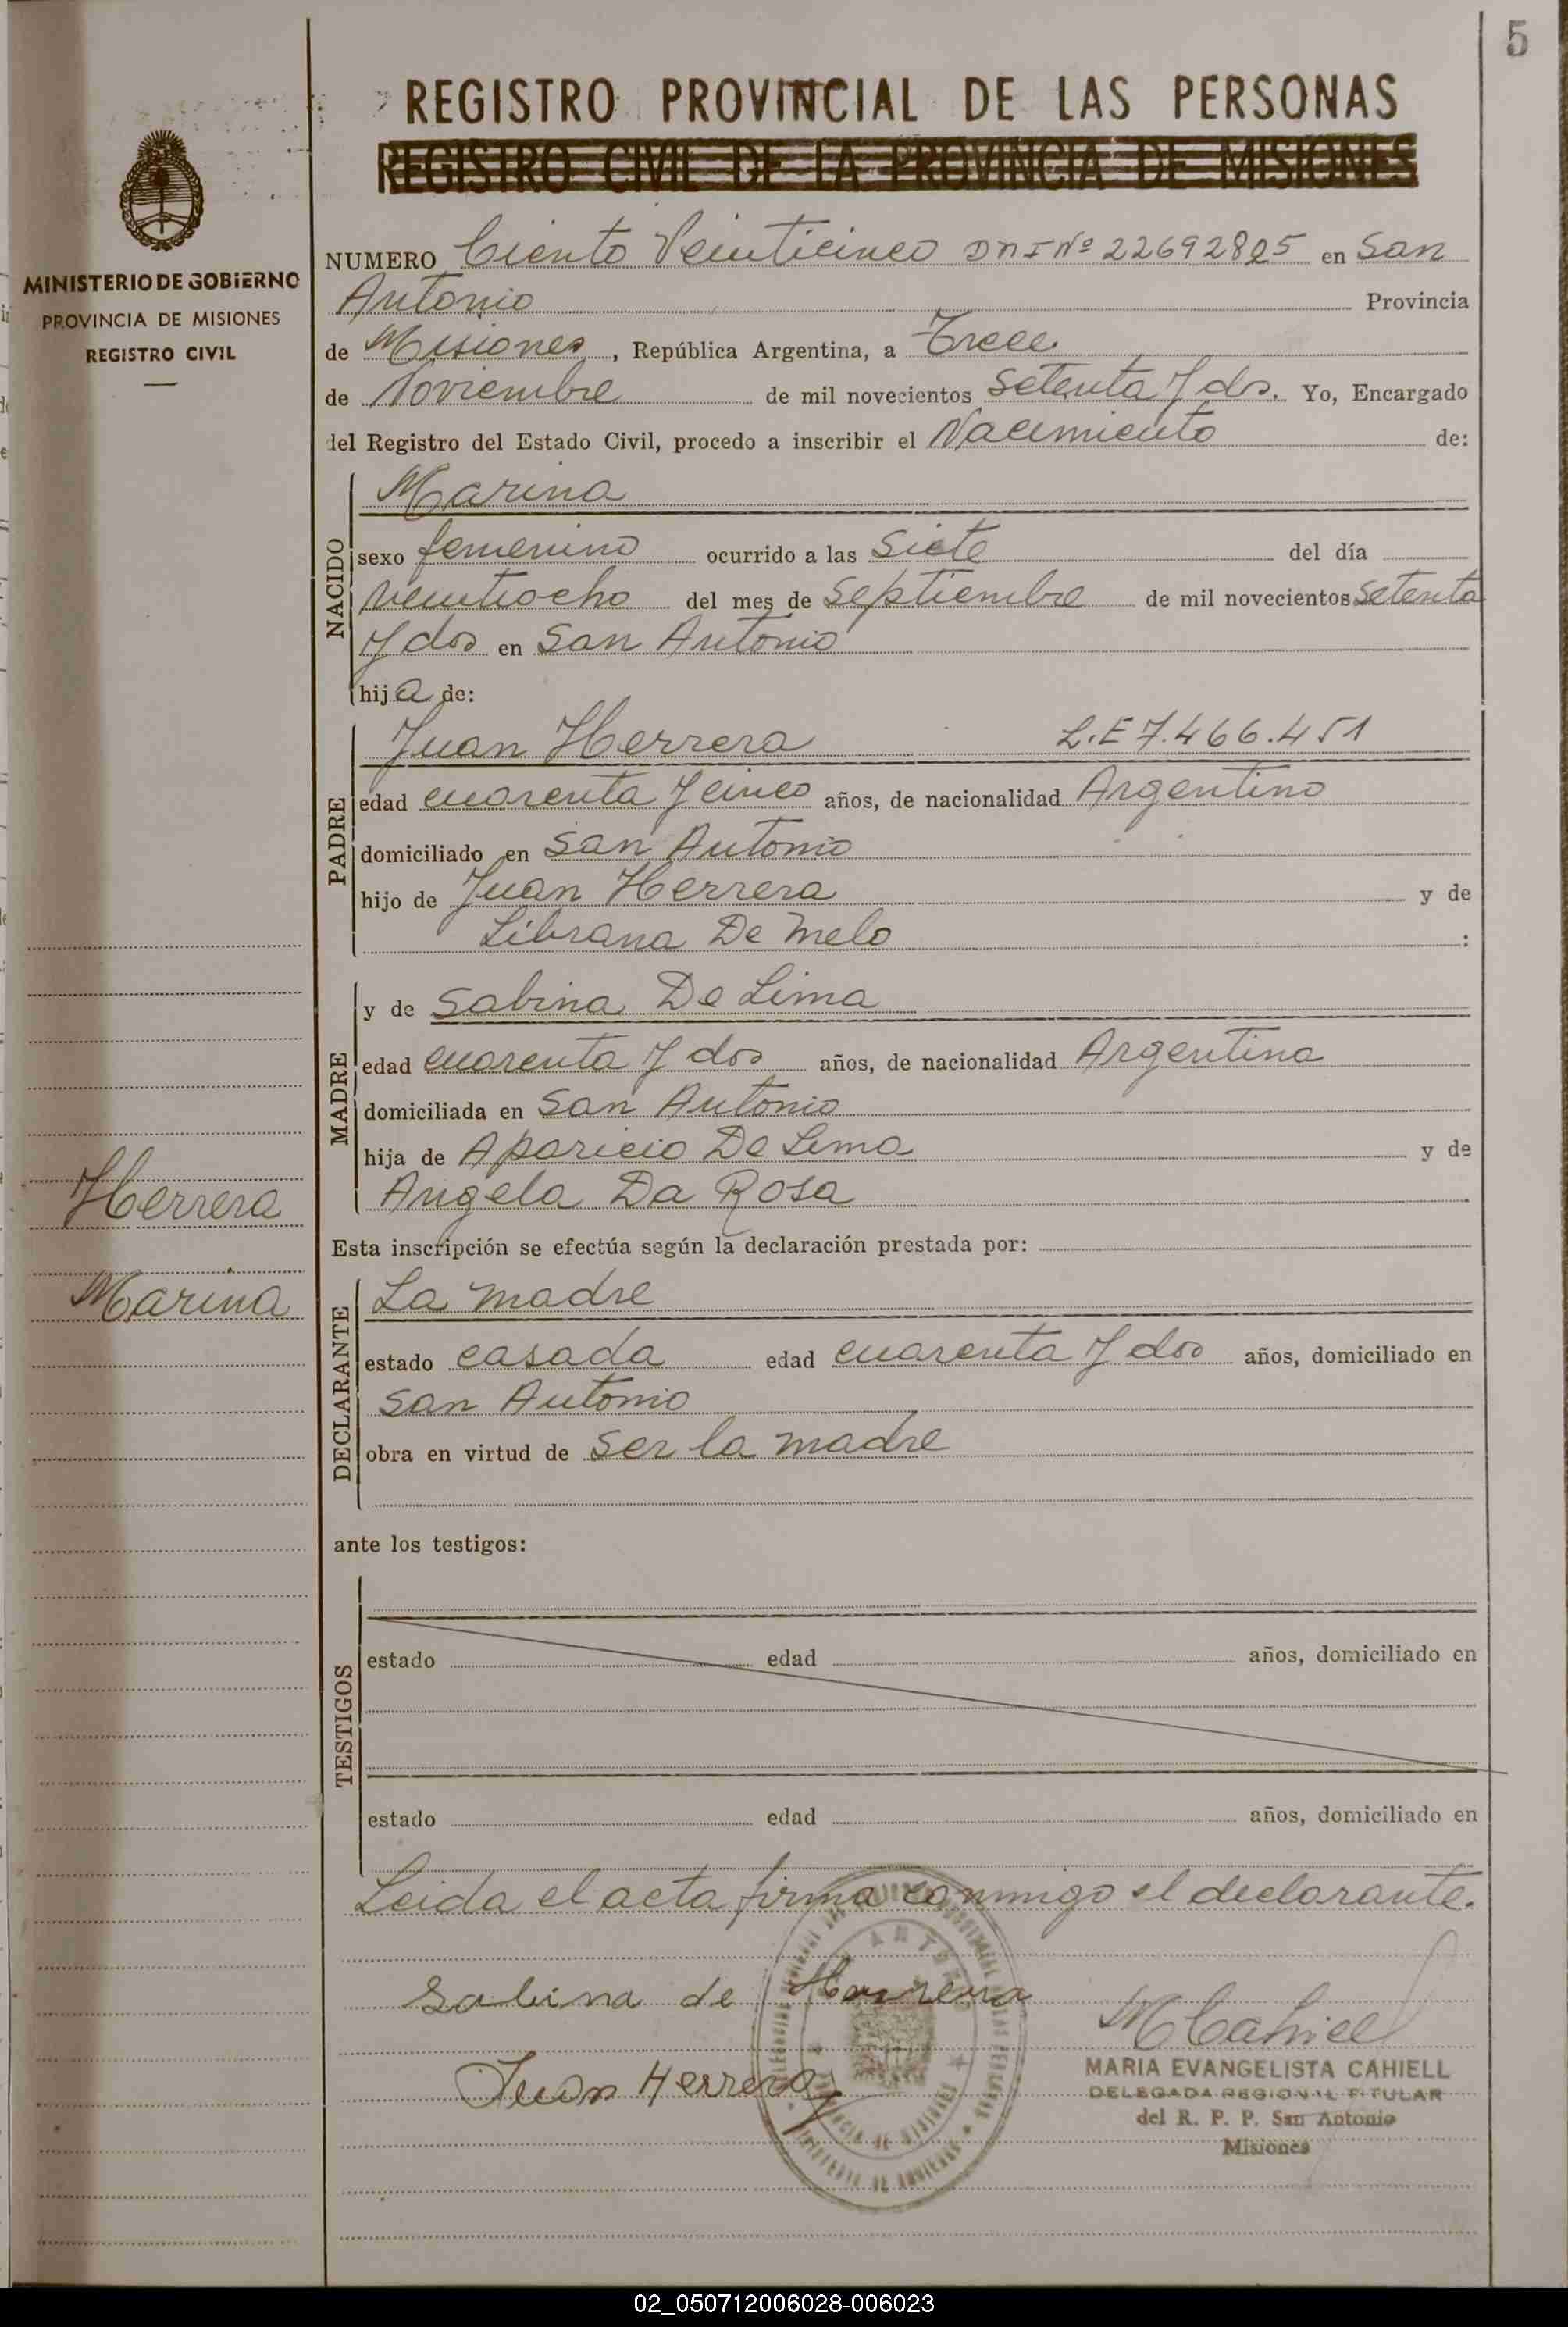 5
REGISTRO PROVINCIAL DE LAS PERSONAS
REGISTRO CIVIL DE LA PROVINCIA DE MISIONES
MINISTERIO DE GOBIERNO
PROVINCIA DE MISIONES
REGISTRO CIVIL
NUMERO Ciento Veinticinco DNI Nº 22692825 en San
Antonio Provincia
de Misiones, República Argentina, a Trece
de Noviembre de mil novecientos Setenta y dos. Yo, Encargado
del Registro del Estado Civil, procedo a inscribir el Nacimiento de:
NACIDO
Marina
sexo femenino ocurrido a las Siete del día
veintiocho del mes de Septiembre de mil novecientos Setenta
y dos en San Antonio
hija de:
PADRE
Juan Herrera L.E 7.466.451
edad cuarenta y cinco años, de nacionalidad Argentino
domiciliado en San Antonio
hijo de Juan Herrera y de
Librana De Melo :
MADRE
y de Sabina De Lima
edad cuarenta y dos años, de nacionalidad Argentina
domiciliada en San Antonio
hija de Aparicio De Lima y de
Angela Da Rosa
Herrera
Marina
Esta inscripción se efectúa según la declaración prestada por:
DECLARANTE
La madre
estado casada edad cuarenta y dos años, domiciliado en
San Antonio
obra en virtud de ser la madre
ante los testigos:
TESTIGOS
estado edad años, domiciliado en
estado edad años, domiciliado en
Leida el acta firma conmigo el declarante.
Sabina de Herrera
Juan Herrera
MCahiell
MARIA EVANGELISTA CAHIELL
DELEGADA REGIONAL TITULAR
del R. P. P. San Antonio
Misiones
02_050712006028-006023